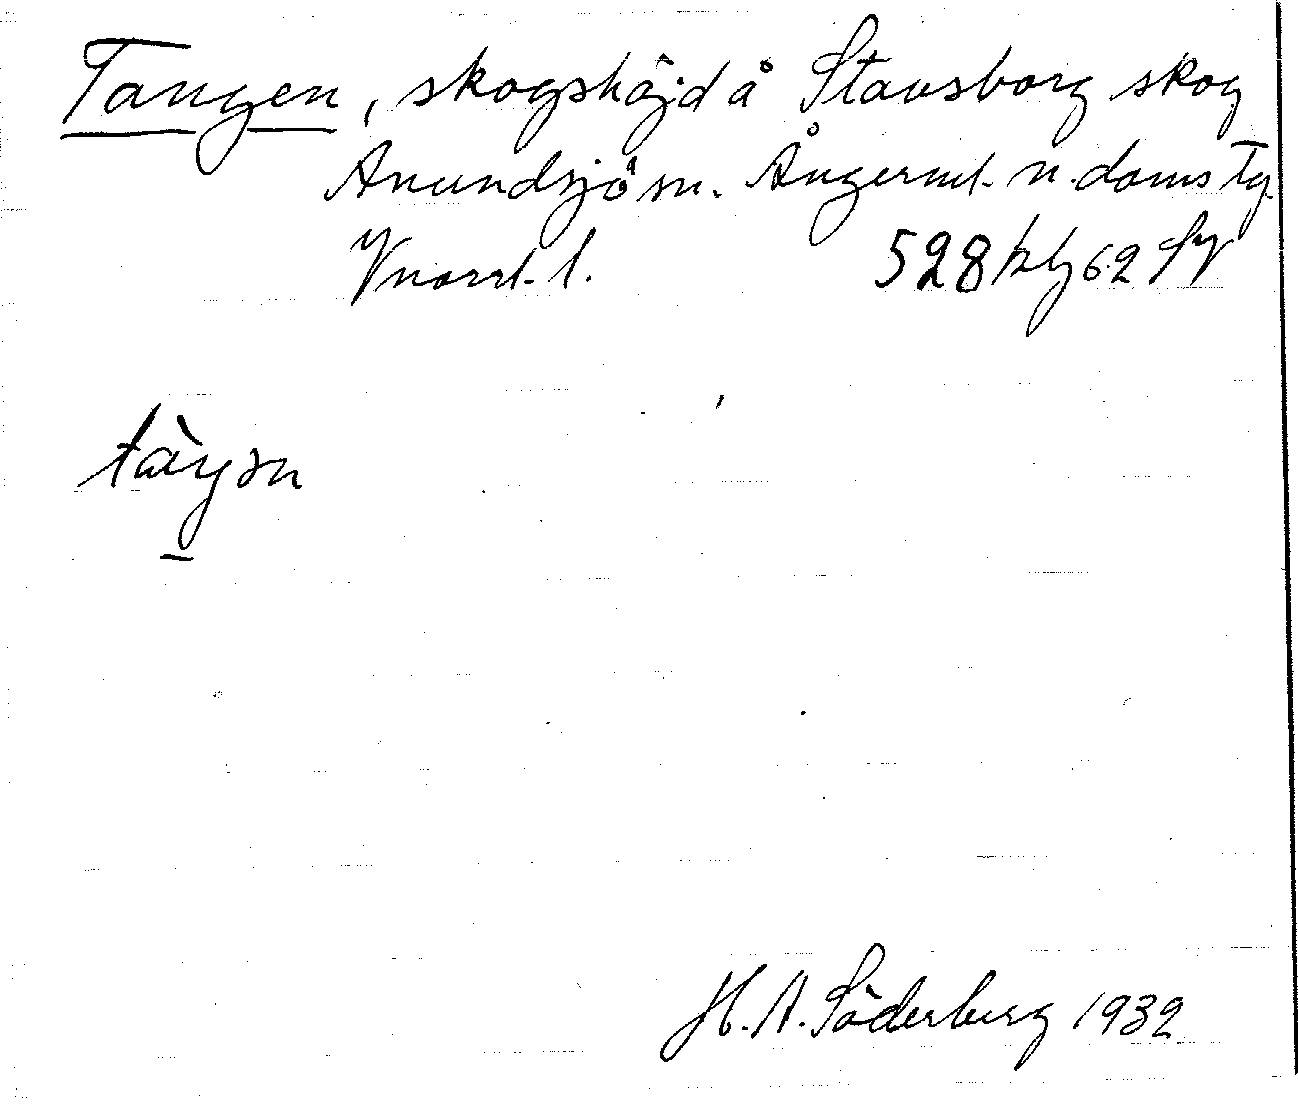 Tangen, skogshöjd å Stavsborg skog
Anundsjö sn. Ångerml. n. doms Tg.
Vnorrl. l. 528 kbl 62 Sy
tàŋən
H. A. Söderberg 1932